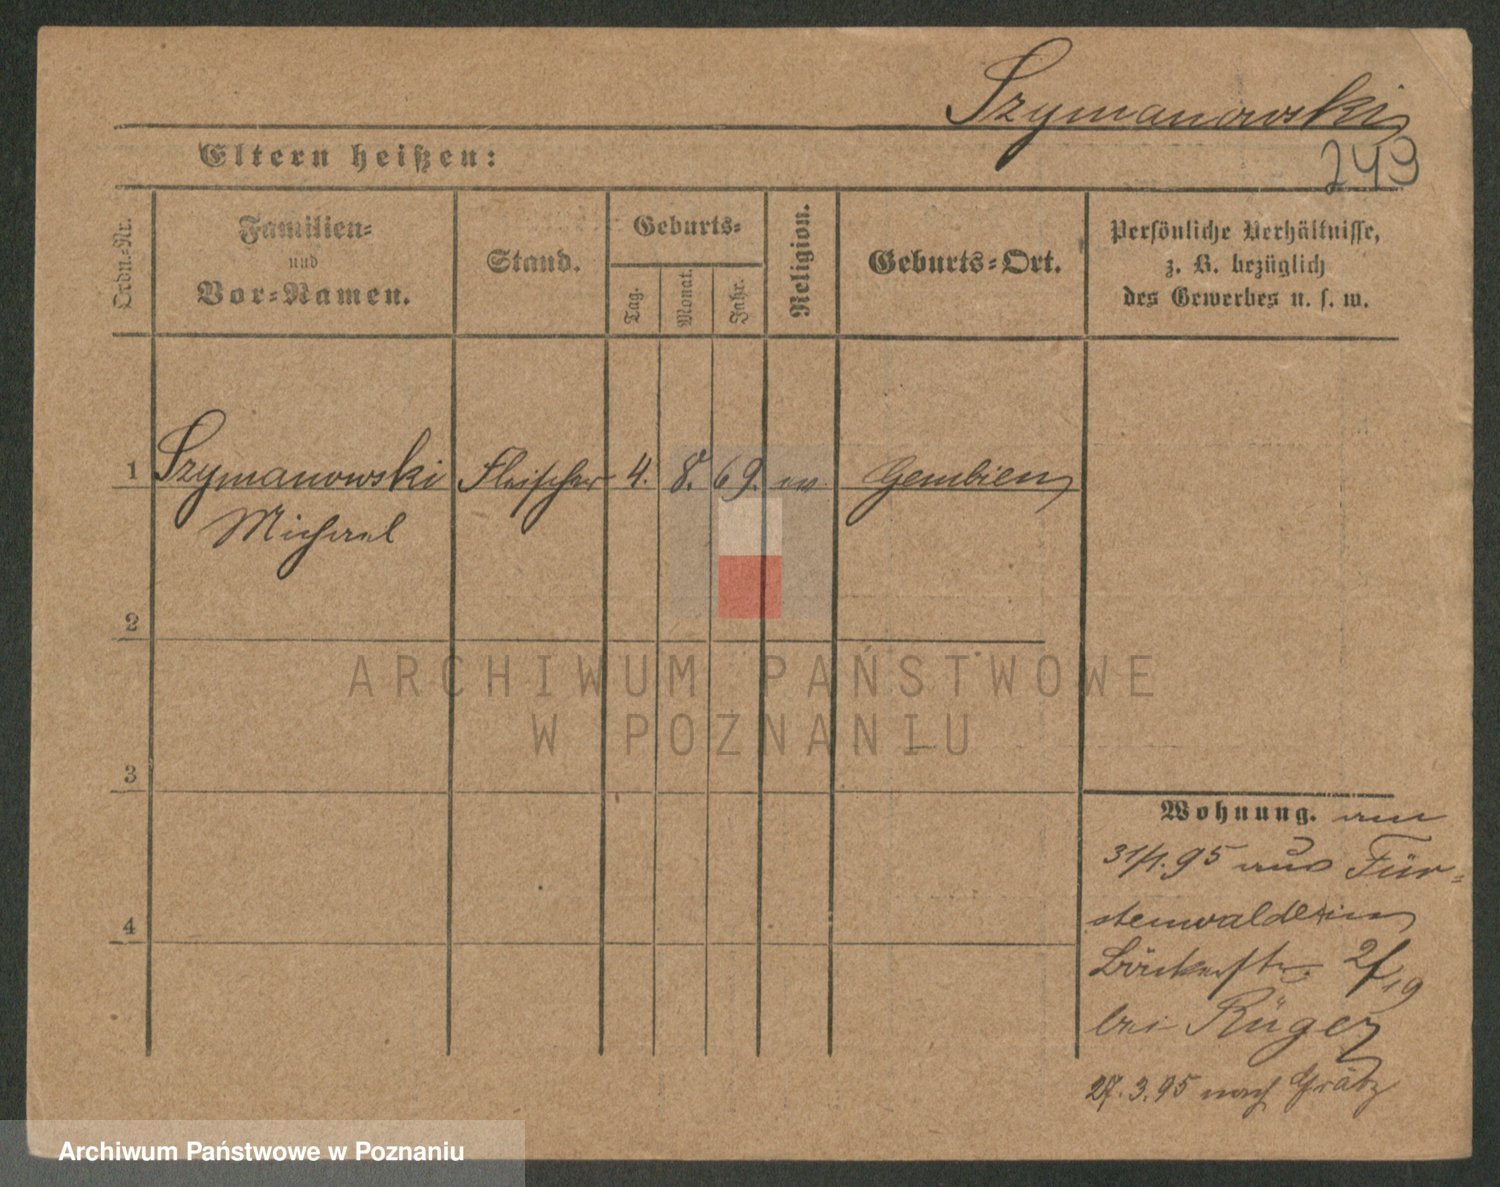 Szymanowski
249
Eltern heißen:
Ordn.-Nr.
Familien-
und
Vor-Namen.
Stand.
Geburts-
Tag.
Monat.
Jahr.
Religion.
Geburts-Ort.
Persönliche Verhältnisse,
z. B. bezüglich
des Gewerbes u. s. w.
1 Szymanowski Fleischer 4. 8. 69. Gembien
Michael
2
3
4
Wohnung. am
31/1.95 aus Für-
stenwalde in
Bäckerstr. 2/19
bei Rüger
27.3.95 nach Grätz
ARCHIWUM PAŃSTWOWE
W POZNANIU
Archiwum Państwowe w Poznaniu